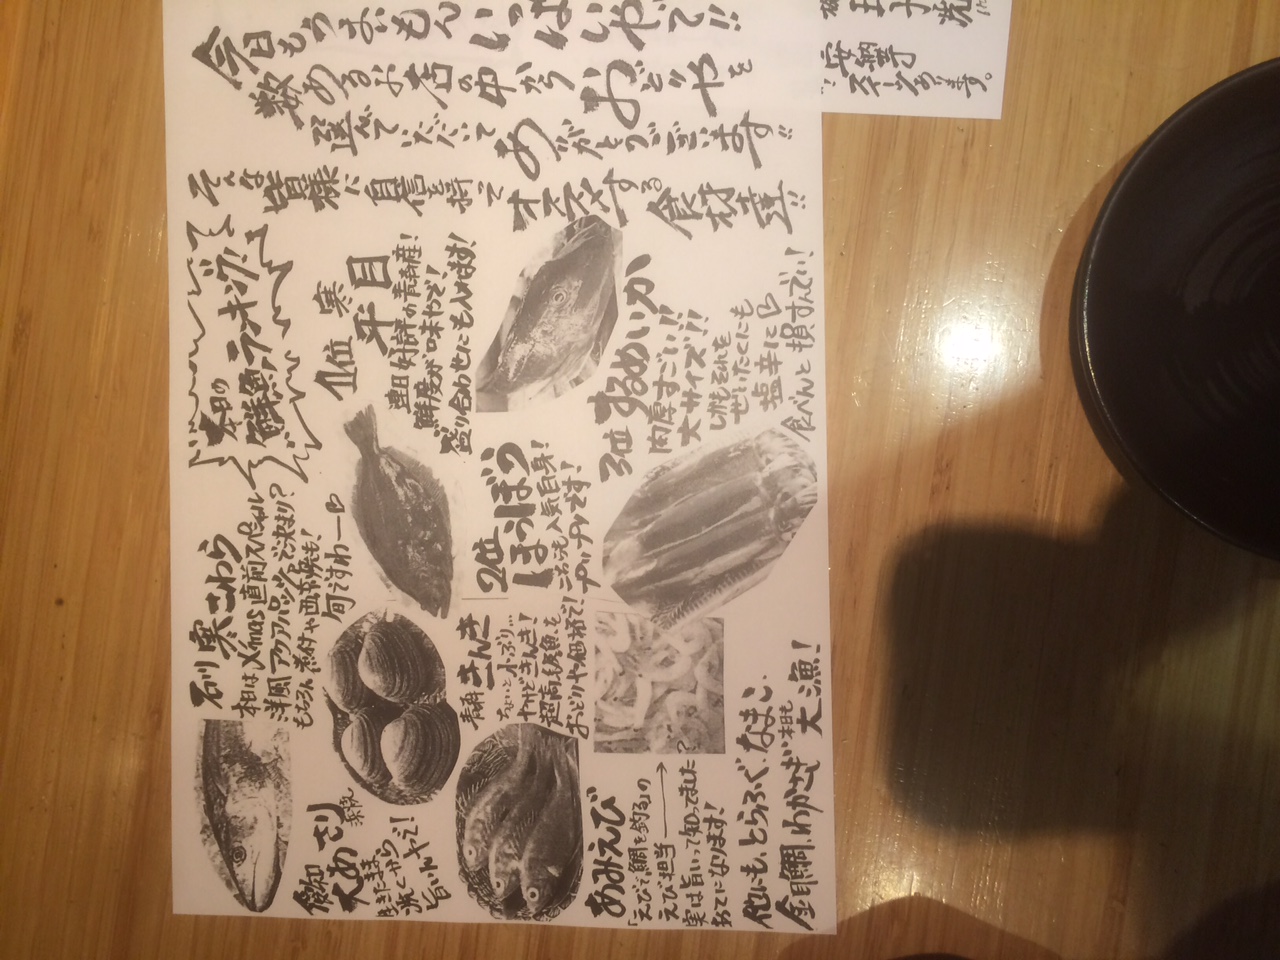 今日もうまいもんいっぱいやで!!
数あるお店の中から おどりやを
選んでいただいて ありがとうございます!!
そんな皆様に自信を持って
オススメする食材達!!
本日の
鮮魚ランキング!
1位 寒平目
連日好評の青森産!
鮮度が味やで!
盛り合わせにも入れます!
2位 ほうぼう
こちらも人気白身!
プリップリです!
3位 するめいか
肉厚すごい!!
大サイズ!!
しかもそれを
ぜいたくにも
塩辛に
食べんと損すんでぃ!
石川 寒さわら
本日はXmas直前スペシャル
洋風アクアパッツァで決まり?
もちろん煮付や西京焼も!
旬ですわー
青森 きんき
ちょいと小ぶり…
やけどきんき!
超高級魚を
おどりや価格で!
愛知 大あさり
生きたまま
旨いんやでェ!
あみえび
「えびで鯛を釣る」の
えび担当→?
実は旨いって知ってました
おてになります!
他にも、とらふぐ、なまこ、
金目鯛、わかさぎ 本日も
大漁!
安納芋
スイーツあります。